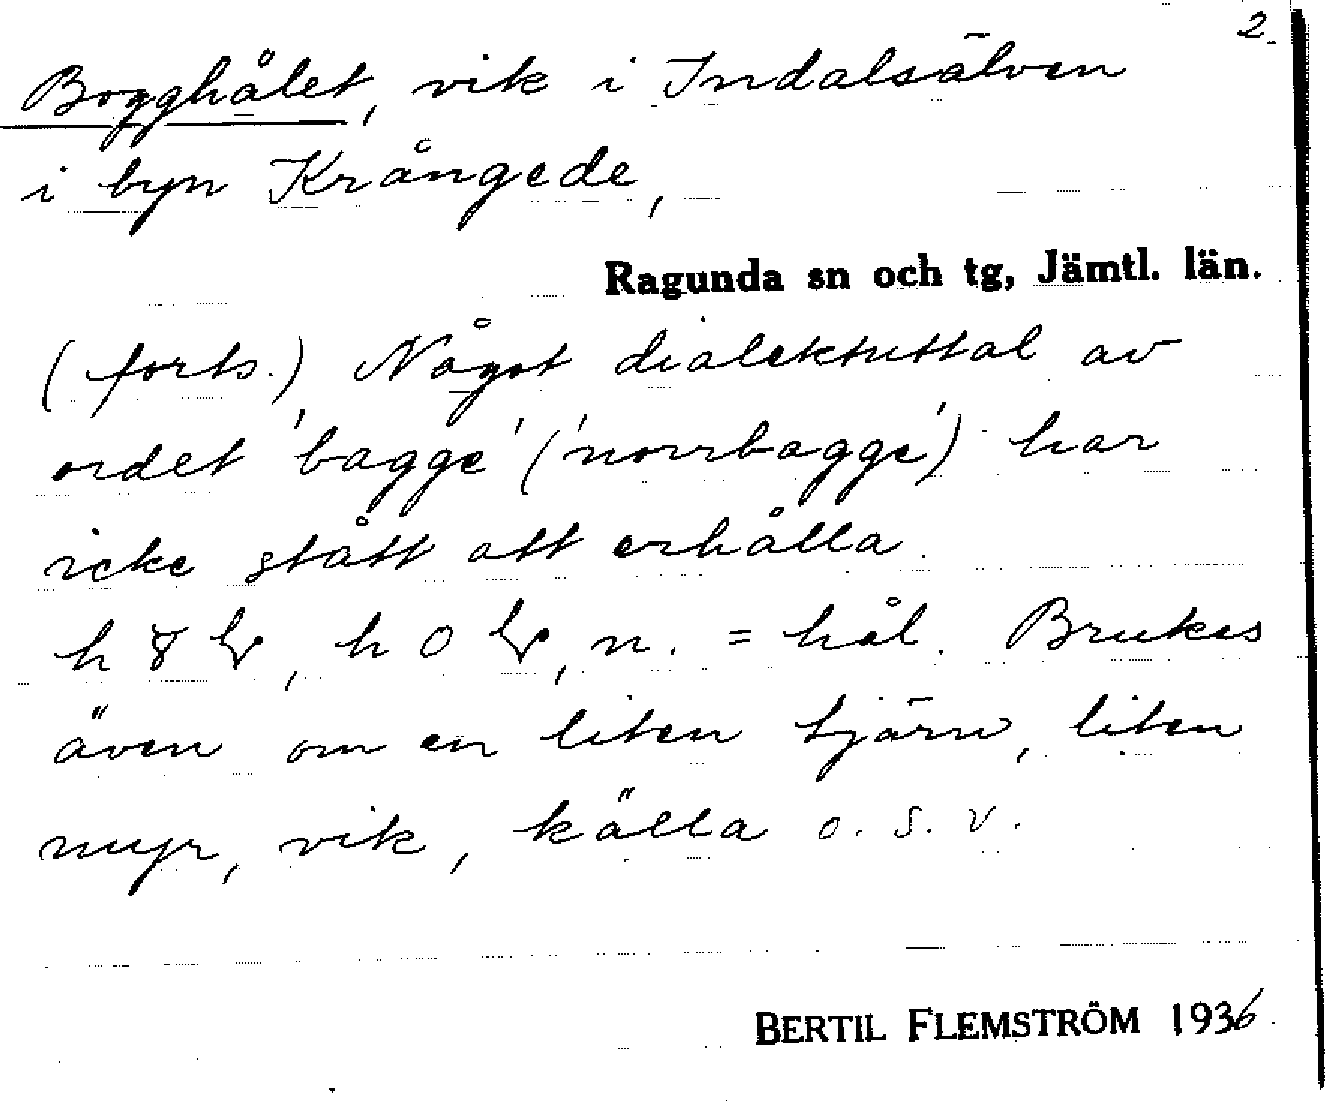 2.
Bogghålet, vik i Indalsälven
i byn Krångede,
Ragunda sn och tg, Jämtl. län.
(forts.) Något dialektuttal av
ordet 'bagge' ('norrbagge') har
icke stått att erhålla.
h , h , n. = hål. Brukas
även om en liten tjärn, liten
myr, vik, källa o. s. v.
BERTIL FLEMSTRÖM 1936